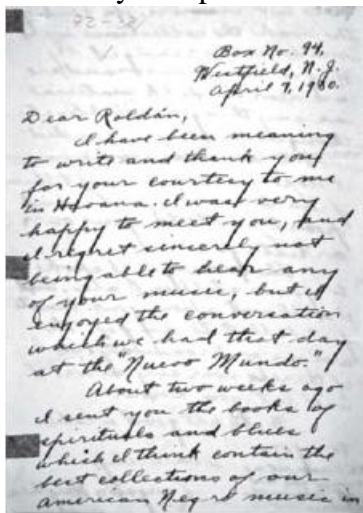 Box No. 94,
Westfield, N.J.
April 7, 1930.
Dear Roldán,
I have been meaning
to write and thank you
for your courtesy to me
in Havana. I was very
happy to meet you, and
I regret sincerely not
being able to hear any
of your music, but I
enjoyed the conversation
which we had that day
at the "Nuevo Mundo."
About two weeks ago
I sent you the books of
spirituals and blues
which I think contain the
best collections of our
American Negro music in